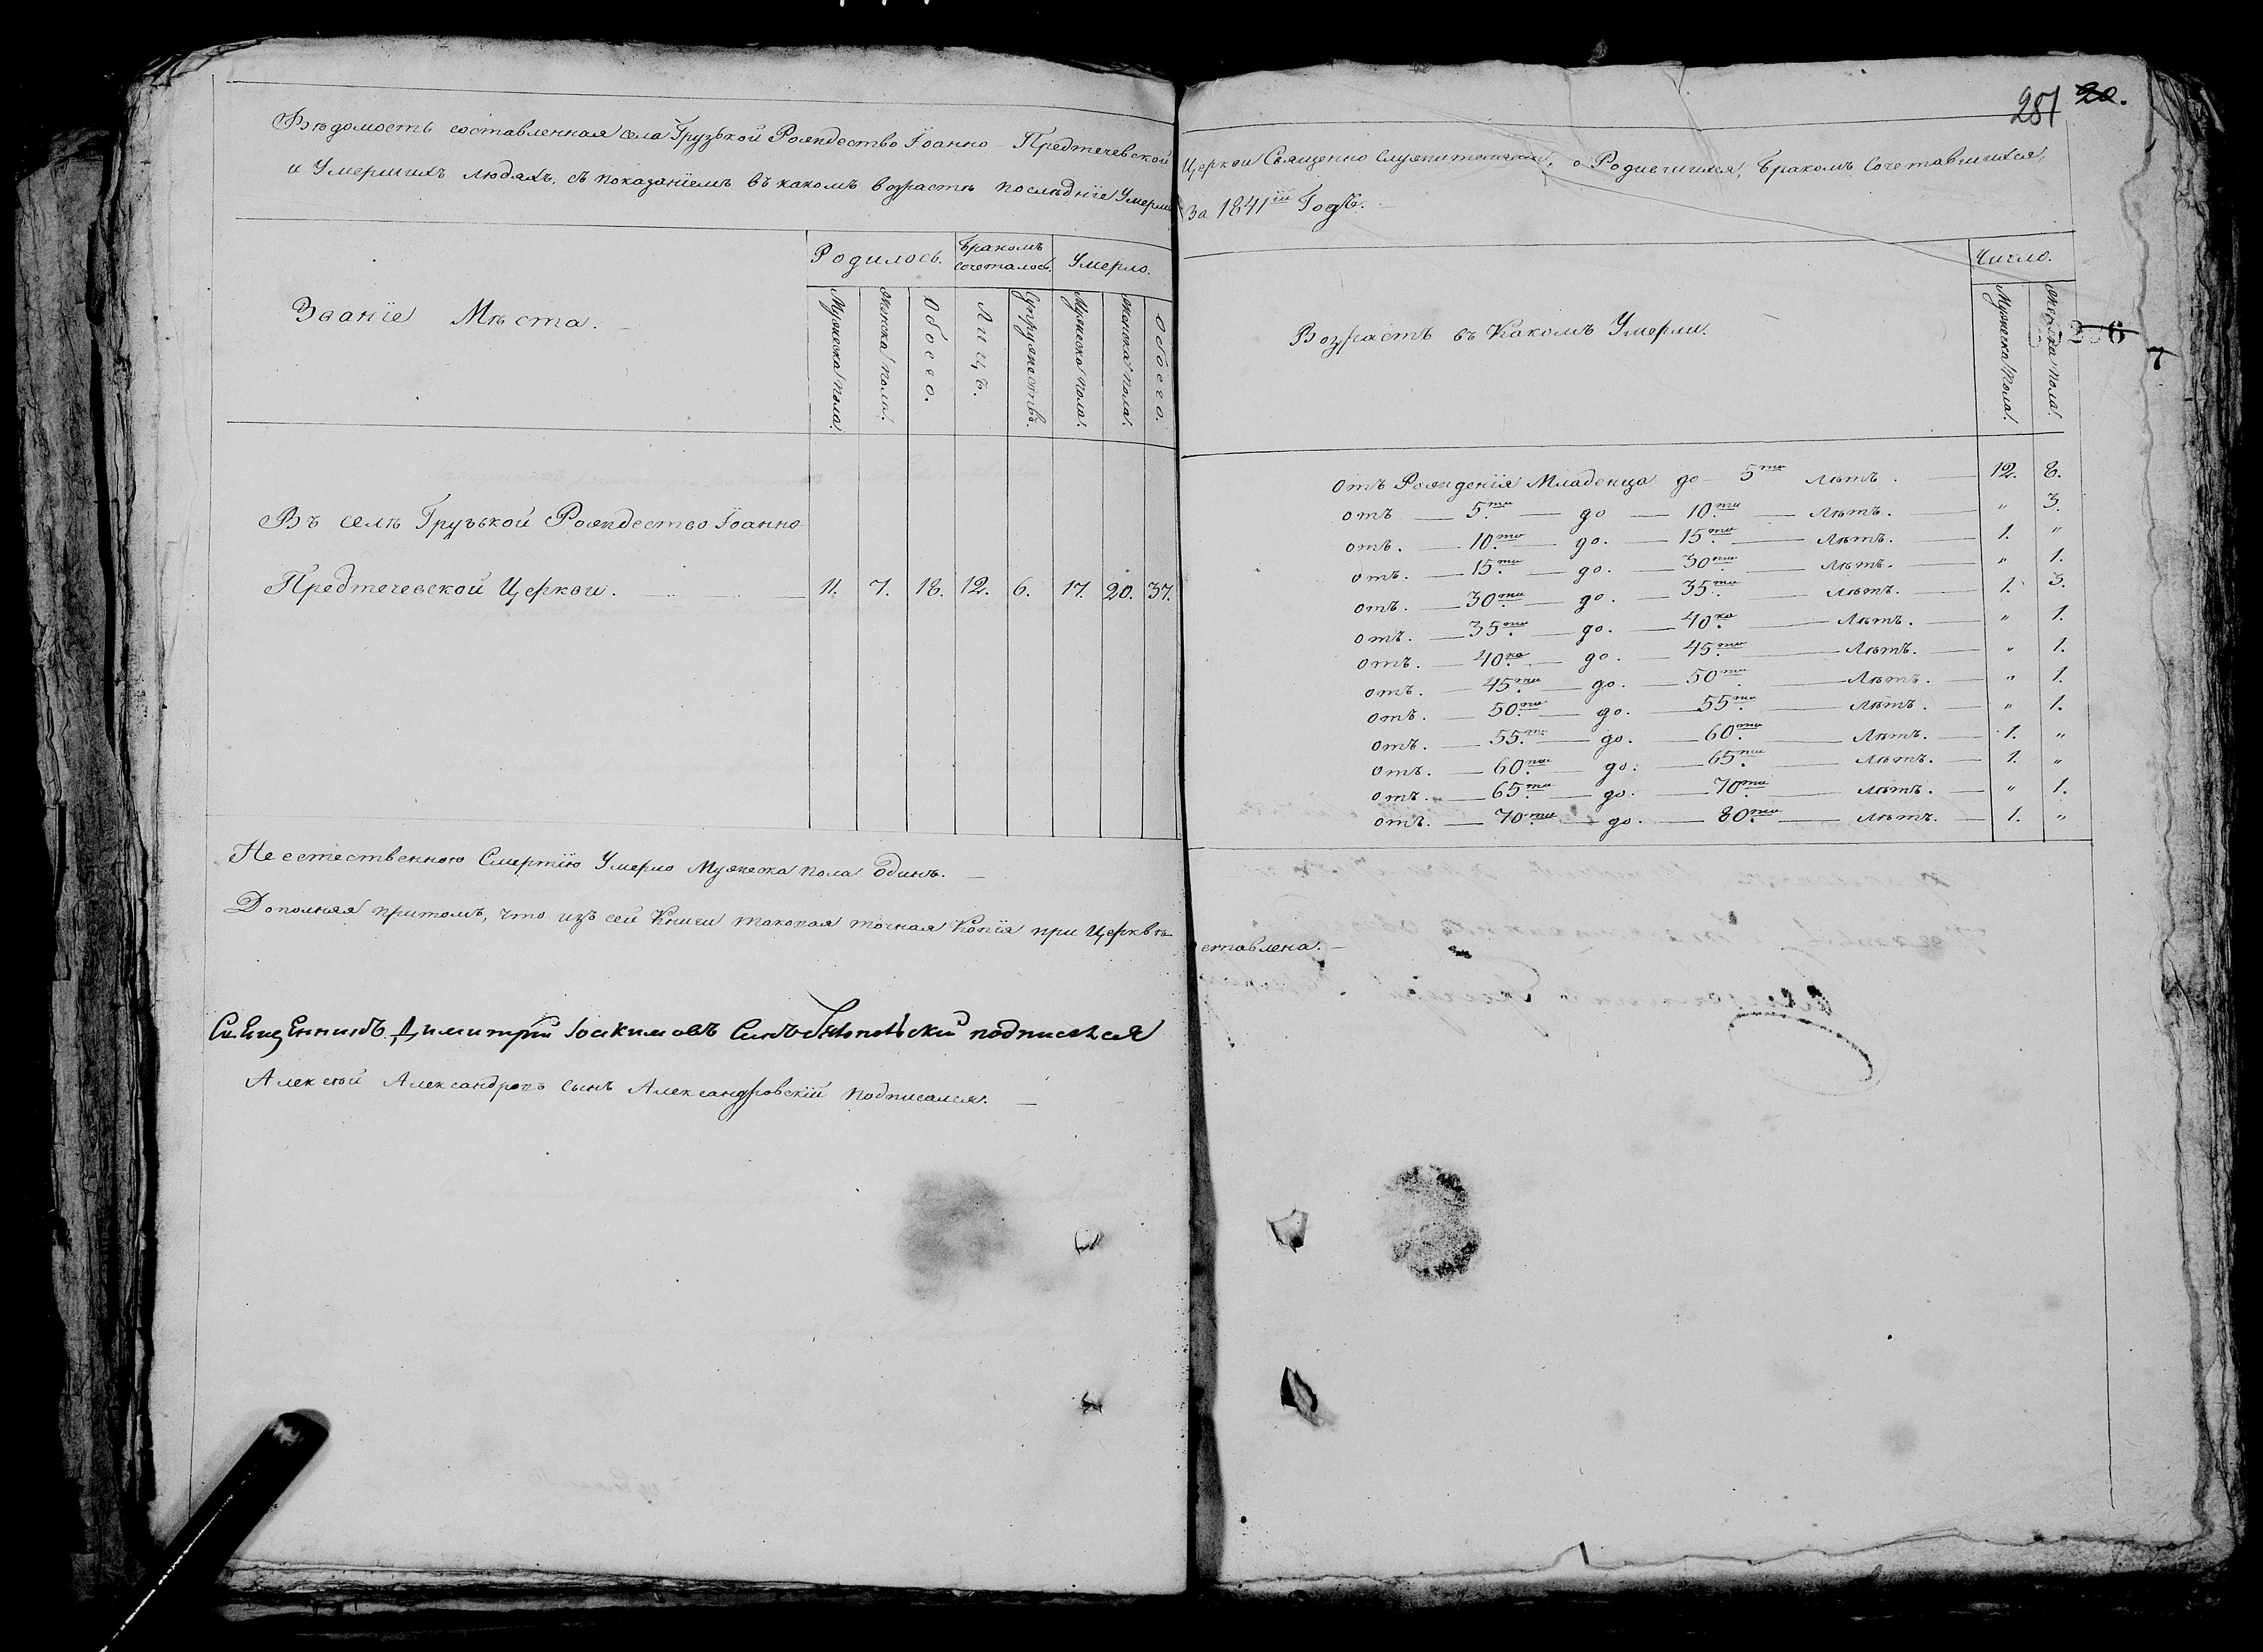 281 20.
Вѣдомость составленная села Грузской Рождество Іоанно-Предтечевской Церкви Священно Служителями, о Родившихся, Бракомъ Сочетавшихся,
и Умершихъ людяхъ, съ показаніемъ въ какомъ возрастѣ послѣдніе Умерли За 1841ій Годъ.
Званіе Мѣста.
Родилось. Бракомъ сочеталось. Умерло.
Мужеска пола. Женска пола. Обоего. Лицъ. Супружествъ. Мужеска пола. Женска пола. Обоего.
Въ селѣ Грузской Рождество Іоанно
Предтечевской Церкви. 11. 7. 18. 12. 6. 17. 20. 37.
Возрастъ въ Какомъ Умерли.
Число.
Мужеска Пола. Женска пола.
6
7
отъ Рожденія Младенца до 5ти Лѣтъ. 12. 8.
отъ 5ти до 10ти Лѣтъ. " 3.
отъ. 10ти до. 15ти Лѣтъ. 1. "
отъ. 15ти до. 30ти Лѣтъ. " 1.
отъ. 30ти до. 35ти Лѣтъ. 1. 3.
отъ. 35ти до. 40ка Лѣтъ. " 1.
отъ. 40ка до. 45ти Лѣтъ. " 1.
отъ. 45ти до. 50ти Лѣтъ. " 1.
отъ. 50ти до. 55ти Лѣтъ. " 1.
отъ. 55ти до. 60ти Лѣтъ. 1. "
отъ. 60ти до. 65ти Лѣтъ. 1. "
отъ. 65ти до. 70ти Лѣтъ. " 1.
отъ. 70ти до. 80ти Лѣтъ. 1. "
Неестественною Смертію Умерло Мужеска пола Одинъ.
Дополняя притомъ, что изъ сей Книги таковая точная Копія при Церквѣ оставлена.
СвЯщЕнникъ Димитрій Іоакимовъ Синъ подписался
Алексѣй Александровъ сынъ Александровскій подписался.